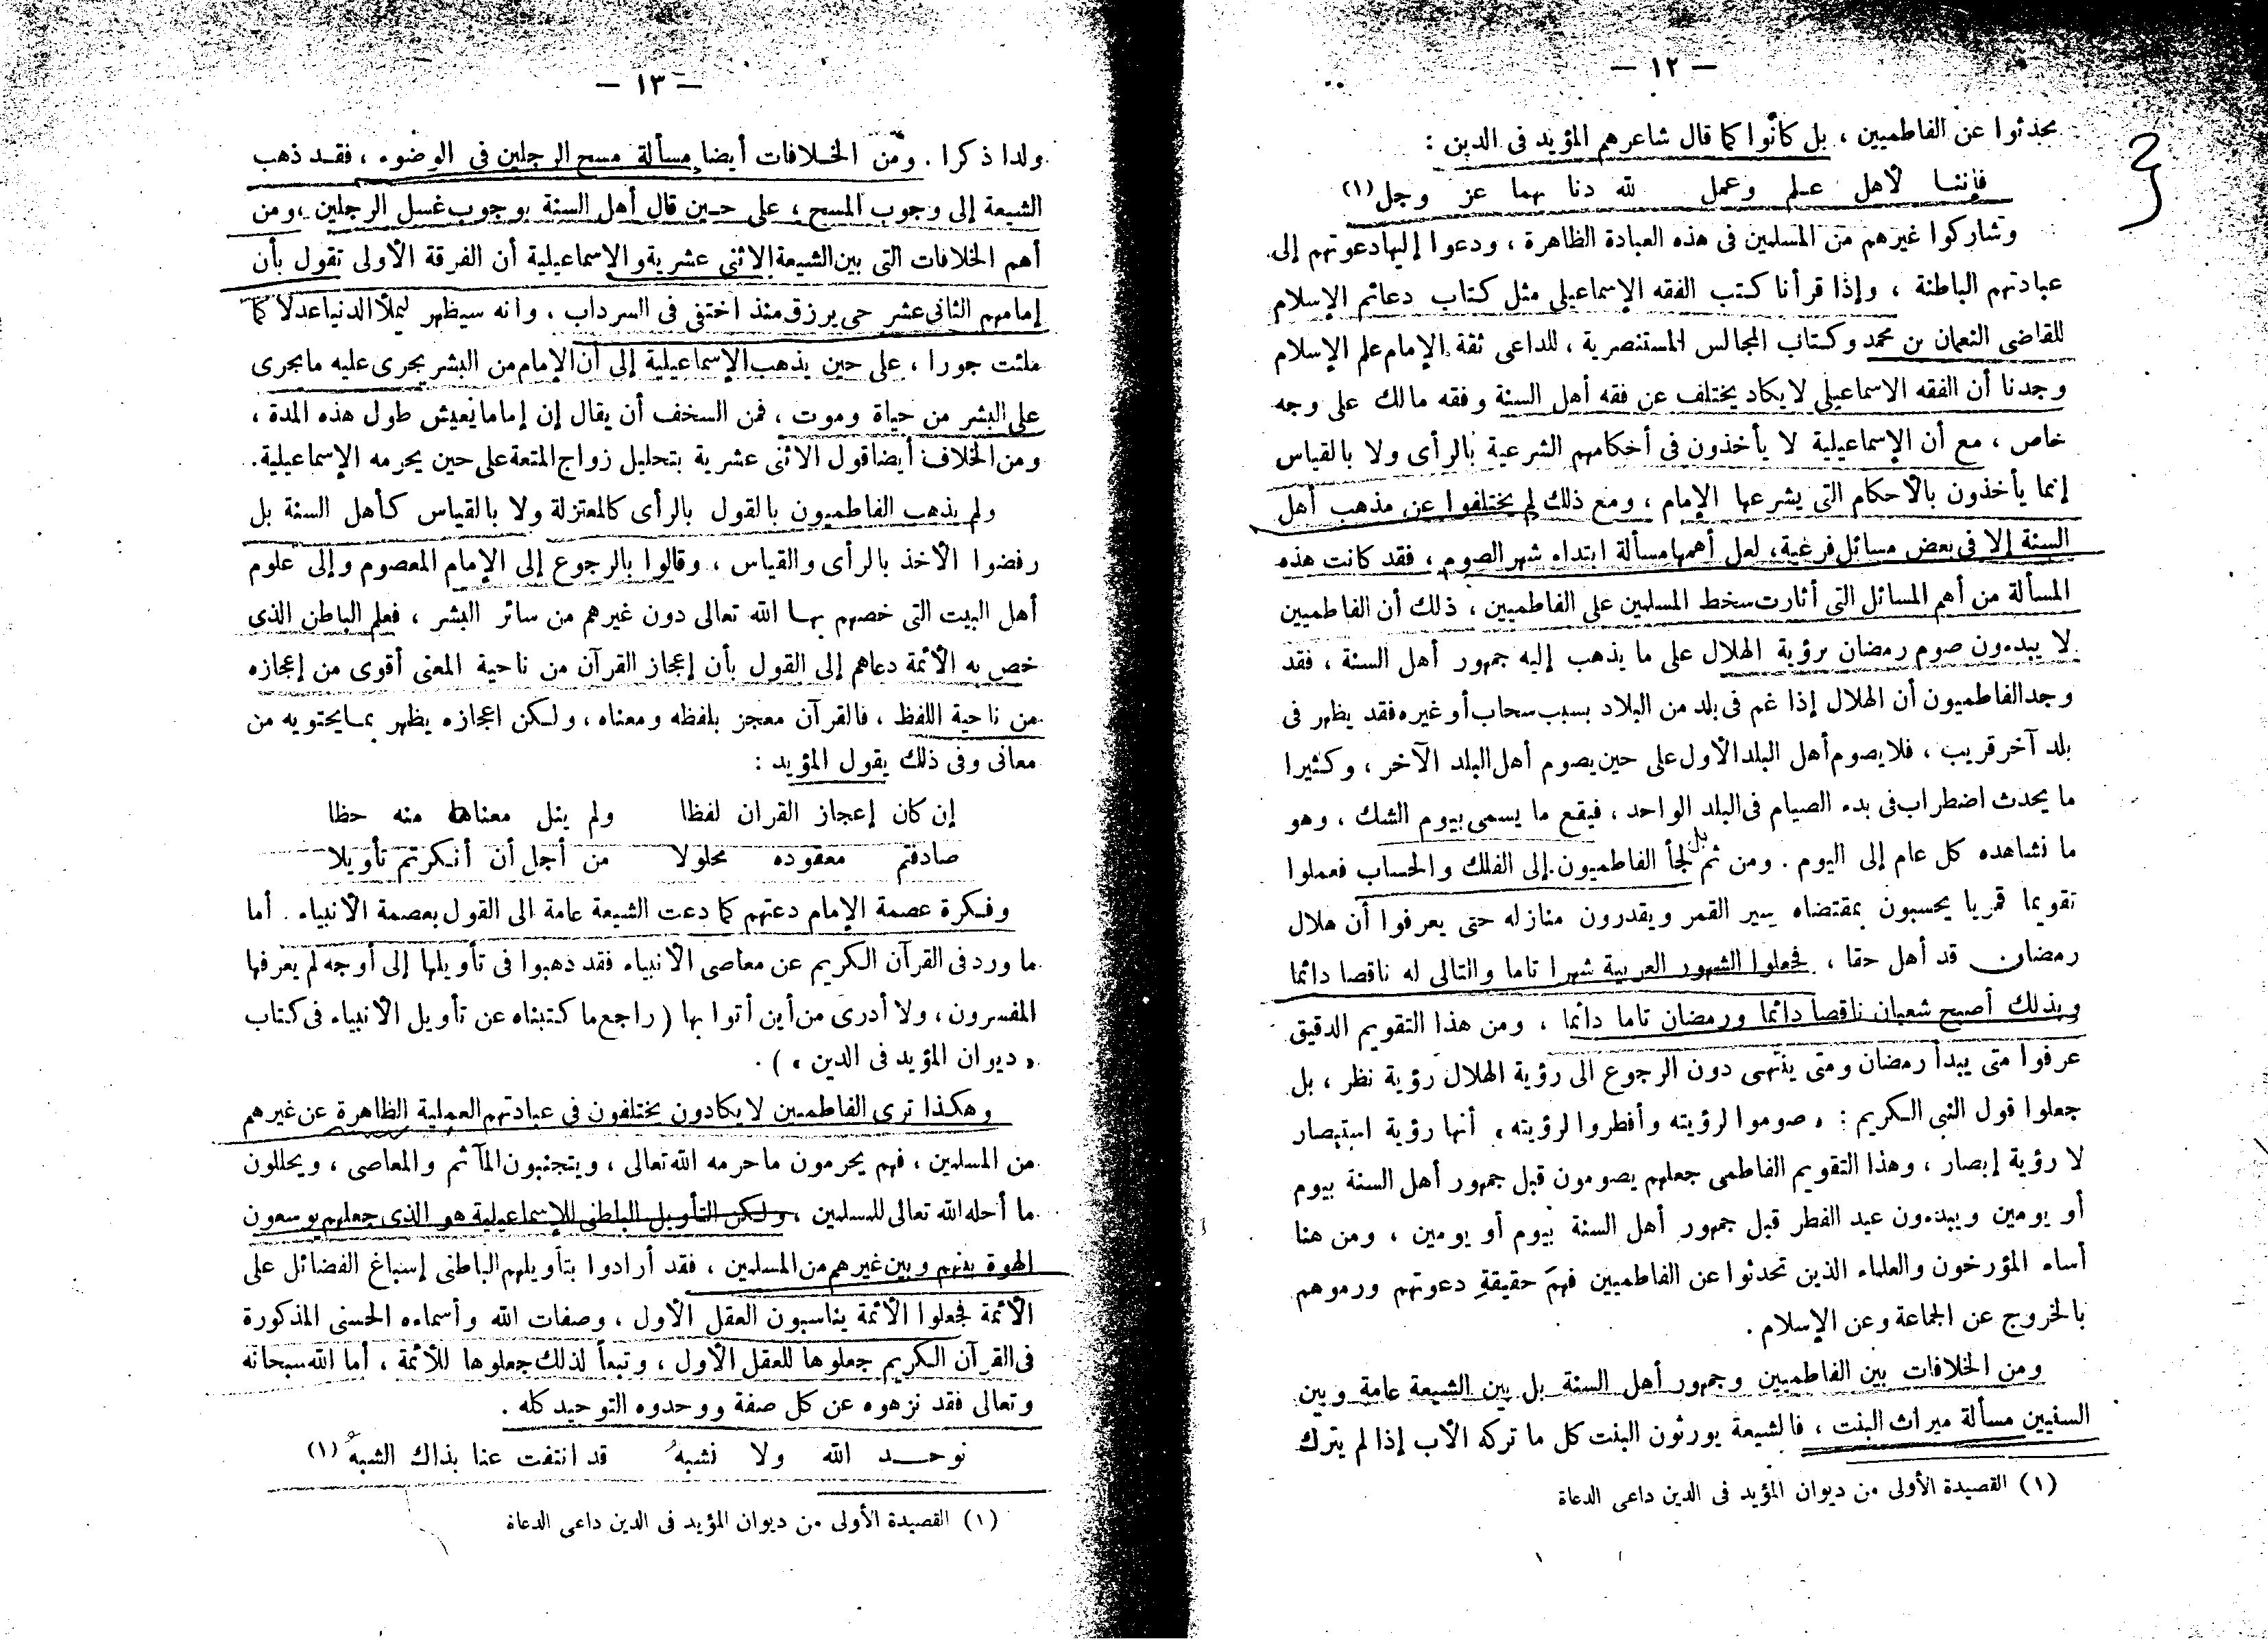 — ١٢ —
تحدثوا عن الفاطميين ، بل كانوا كما قال شاعرهم المؤيد فى الدين :
فإننا لأهل علم وعمل لله دنا بهما عز وجل (١)
وشاركوا غيرهم من المسلمين فى هذه العبادة الظاهرة ، ودعوا إليها دعوتهم إلى
عبادتهم الباطنة ، وإذا قرأنا كتب الفقه الإسماعيلى مثل كتاب دعائم الإسلام
للقاضى النعمان بن محمد وكتاب المجالس المستنصرية ، للداعى ثقة الإمام علم الإسلام
وجدنا أن الفقه الاسماعيلى لا يكاد يختلف عن فقه أهل السنة وفقه مالك على وجه
خاص ، مع أن الإسماعيلية لا يأخذون فى أحكامهم الشرعية بالرأى ولا بالقياس
إنما يأخذون بالأحكام التى يشرعها الإمام ، ومع ذلك لم يختلفوا عن مذهب أهل
السنة إلا فى بعض مسائل فرعية ، لعل أهمها مسألة ابتداء شهر الصوم ، فقد كانت هذه
المسألة من أهم المسائل التى أثارت سخط المسلمين على الفاطميين ، ذلك أن الفاطميين
لا يبدءون صوم رمضان برؤية الهلال على ما يذهب إليه جمهور أهل السنة ، فقد
وجد الفاطميون أن الهلال إذا غم فى بلد من البلاد بسبب سحاب أو غيره فقد يظهر فى
بلد آخر قريب ، فلا يصوم أهل البلد الأول على حين يصوم أهل البلد الآخر ، وكثيرا
ما يحدث اضطراب فى بدء الصيام فى البلد الواحد ، فيقع ما يسمى بيوم الشك ، وهو
ما نشاهده كل عام إلى اليوم . ومن ثم لجأ الفاطميون إلى الفلك والحساب فعملوا
تقويما قمريا يحسبون بمقتضاه سير القمر ويقدرون منازله حتى يعرفوا أن هلال
رمضان قد أهل حقا ، فجعلوا الشهور العربية شهرا تاما والتالى له ناقصا دائما
وبذلك أصبح شعبان ناقصا دائما ورمضان تاما دائما ، ومن هذا التقويم الدقيق
عرفوا متى يبدأ رمضان ومتى ينتهى دون الرجوع الى رؤية الهلال رؤية نظر ، بل
جعلوا قول النبى الكريم : « صوموا لرؤيته وأفطروا لرؤيته » أنها رؤية استبصار
لا رؤية إبصار ، وهذا التقويم الفاطمى جعلهم يصومون قبل جمهور أهل السنة بيوم
أو يومين ويبدءون عيد الفطر قبل جمهور أهل السنة بيوم أو يومين ، ومن هنا
أساء المؤرخون والعلماء الذين تحدثوا عن الفاطميين فهم حقيقة دعوتهم ورموهم
بالخروج عن الجماعة وعن الإسلام .
ومن الخلافات بين الفاطميين وجمهور أهل السنة بل بين الشيعة عامة وبين
السنيين مسألة ميراث البنت ، فالشيعة يورثون البنت كل ما تركه الأب إذا لم يترك
(١) القصيدة الأولى من ديوان المؤيد فى الدين داعى الدعاة
— ١٣ —
ولدا ذكرا . ومن الخلافات أيضا مسألة مسح الرجلين فى الوضوء ، فقد ذهب
الشيعة إلى وجوب المسح ، على حين قال أهل السنة بوجوب غسل الرجلين ، ومن
أهم الخلافات التى بين الشيعة الاثنى عشرية والاسماعيلية أن الفرقة الأولى تقول بأن
إمامهم الثانى عشر حى يرزق منذ اختفى فى السرداب ، وانه سيظهر ليملأ الدنيا عدلا كما
ملئت جورا ، على حين يذهب الإسماعيلية إلى أن الإمام من البشر يجرى عليه ما يجرى
على البشر من حياة وموت ، فمن السخف أن يقال إن إماما يعيش طول هذه المدة ،
ومن الخلاف أيضا قول الاثنى عشرية بتحليل زواج المتعة على حين يحرمه الإسماعيلية .
ولم يذهب الفاطميون بالقول بالرأى كالمعتزلة ولا بالقياس كأهل السنة بل
رفضوا الأخذ بالرأى والقياس ، وقالوا بالرجوع إلى الإمام المعصوم وإلى علوم
أهل البيت التى خصهم بها الله تعالى دون غيرهم من سائر البشر ، فعلم الباطن الذى
خص به الأئمة دعاهم إلى القول بأن إعجاز القرآن من ناحية المعنى أقوى من إعجازه
من ناحية اللفظ ، فالقرآن معجز بلفظه ومعناه ، ولكن اعجازه يظهر بما يحتويه من
معانى وفى ذلك يقول المؤيد :
إن كان إعجاز القران لفظا ولم ينل معناه منه حظا
صادفتم معقوده محلولا من أجل أن أنكرتم تأويلا
وفكرة عصمة الإمام دعتهم كما دعت الشيعة عامة الى القول بعصمة الأنبياء . أما
ما ورد فى القرآن الكريم عن معاصى الأنبياء فقد ذهبوا فى تأويلها إلى أوجه لم يعرفها
المفسرون ، ولا أدرى من أين أتوا بها ( راجع ما كتبناه عن تأويل الأنبياء فى كتاب
« ديوان المؤيد فى الدين » ) .
وهكذا ترى الفاطميين لا يكادون يختلفون فى عبادتهم العملية الظاهرة عن غيرهم
من المسلمين ، فهم يحرمون ما حرمه الله تعالى ، ويتجنبون المآثم والمعاصى ، ويحللون
ما أحله الله تعالى للمسلمين ، ولكن التأويل الباطنى للإسماعيلية هو الذى جعلهم يوسعون
الهوة بينهم وبين غيرهم من المسلمين ، فقد أرادوا بتأويلهم الباطنى إسباغ الفضائل على
الأئمة فجعلوا الأئمة يناسبون العقل الأول ، وصفات الله وأسماءه الحسنى المذكورة
فى القرآن الكريم جعلوها للعقل الأول ، وتبعاً لذلك جعلوها للأئمة ، أما الله سبحانه
وتعالى فقد نزهوه عن كل صفة ووحدوه التوحيد كله .
نوحد الله ولا نشبهُ قد انتفت عنا بذاك الشبهُ (١)
(١) القصيدة الأولى من ديوان المؤيد فى الدين داعى الدعاة